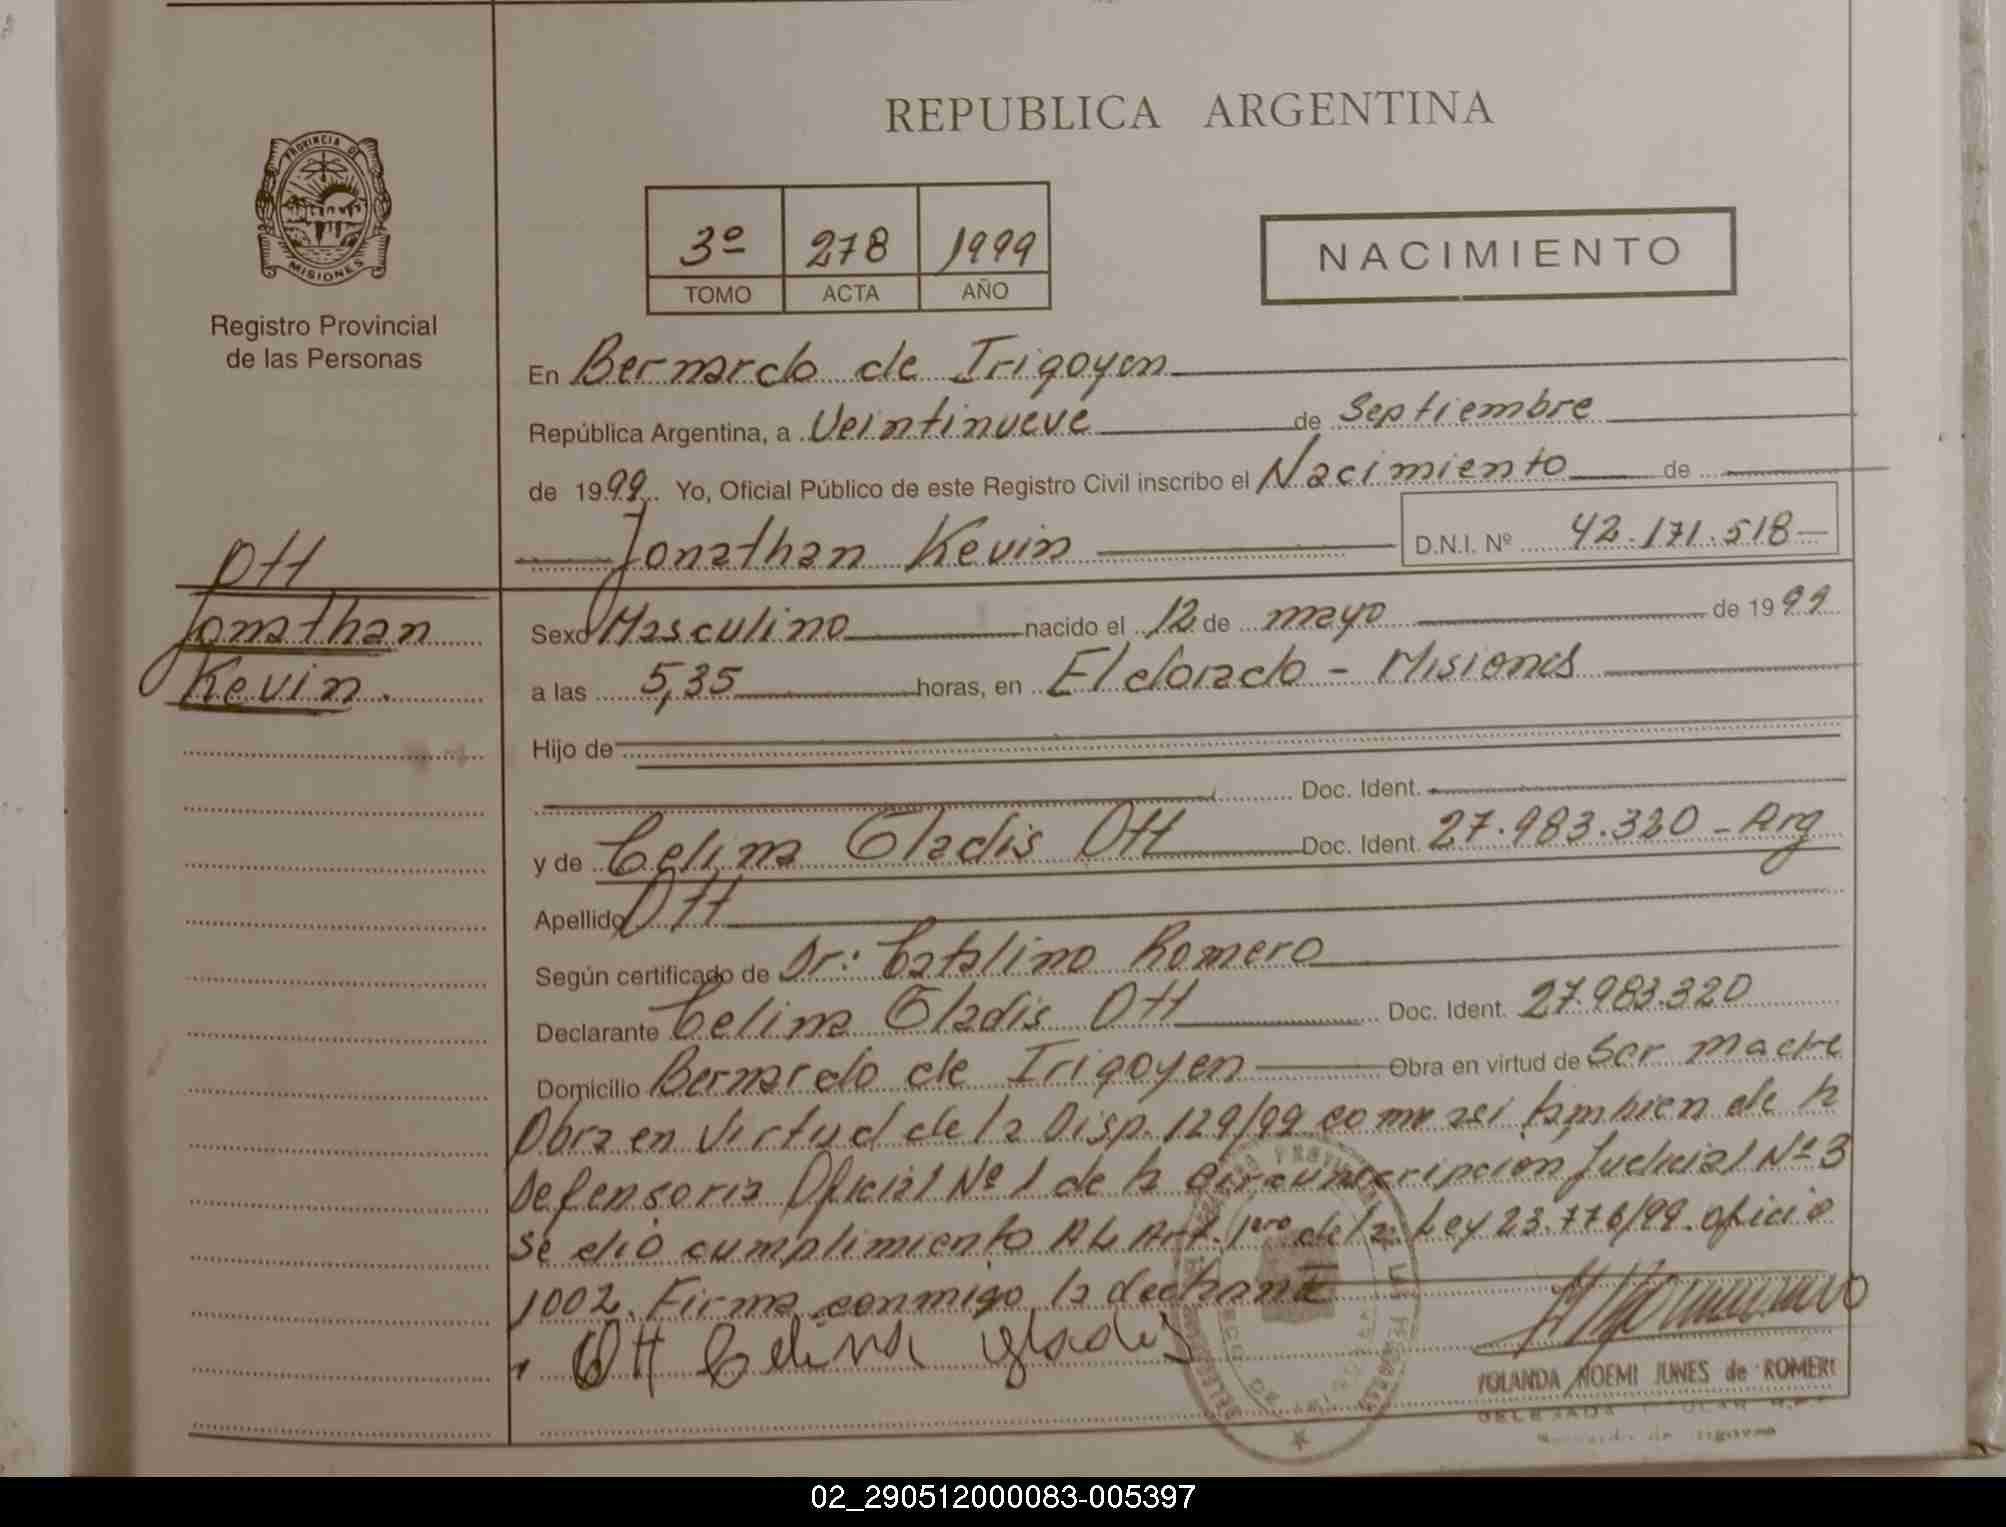 REPUBLICA ARGENTINA
PROVINCIA DE
MISIONES
Registro Provincial
de las Personas
3º 278 1999
TOMO ACTA AÑO
NACIMIENTO
En Bernardo de Irigoyen
República Argentina, a Veintinueve de Septiembre
de 1999. Yo, Oficial Público de este Registro Civil inscribo el Nacimiento de
Jonathan Kevin D.N.I. Nº 42.171.518
Ott
Jonathan
Kevin.
Sexo Masculino nacido el 12 de mayo de 1999
a las 5,35 horas, en Eldorado - Misiones
Hijo de
Doc. Ident.
y de Celina Gladis Ott Doc. Ident. 27.983.320 - Arg
Apellido Ott
Según certificado de Dr: Catalino Romero
Declarante Celina Gladis Ott Doc. Ident. 27.983.320
Domicilio Bernardo de Irigoyen Obra en virtud de Ser madre
Obra en virtud de la Disp. 129/99 como asi tambien de la
Defensoria Oficial Nº 1 de la circunscripcion Judicial Nº 3
se dio cumplimiento AL Art. 1ero de la Ley 23.776/99. oficio
1002. Firma conmigo la declarante
Ott Celina gladis
YOLANDA NOEMI JUNES de ROMER
DELEGADA TITULAR
Bernardo de Irigoyen
02_290512000083-005397